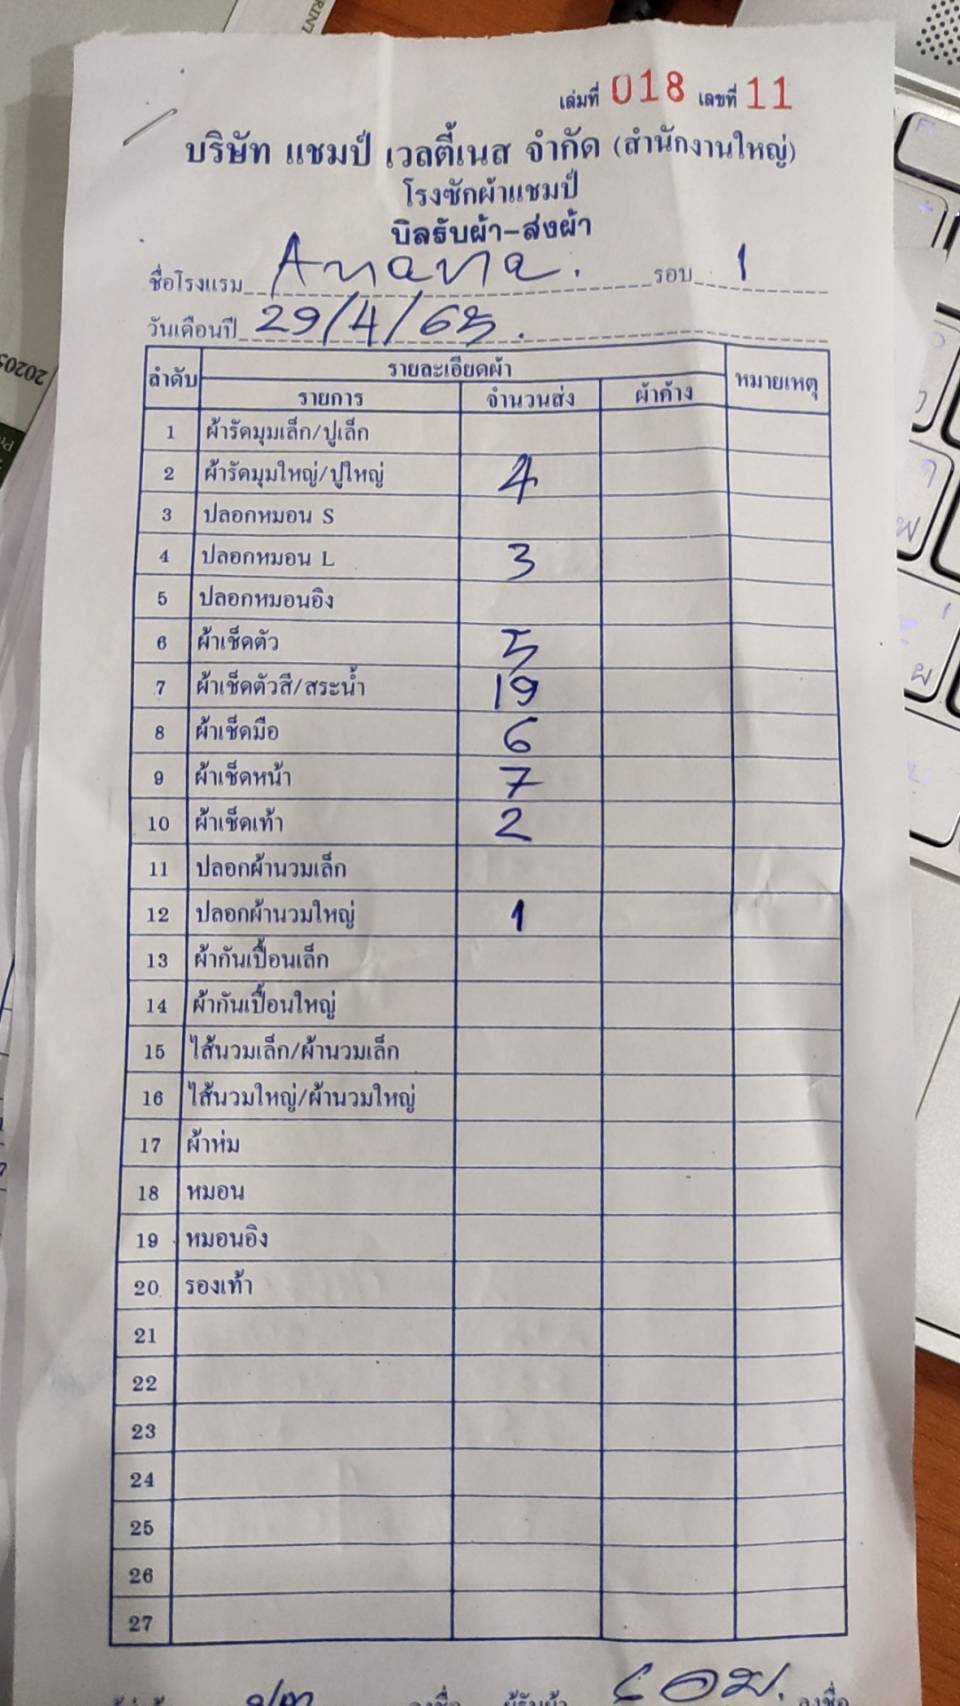 เล่มที่ 018 เลขที่ 11
บริษัท แชมป์ เวลตี้เนส จำกัด (สำนักงานใหญ่)
โรงซักผ้าแชมป์
บิลรับผ้า-ส่งผ้า
ชื่อโรงแรม Anana. รอบ 1
วันเดือนปี 29/4/65.
ลำดับ รายละเอียดผ้า หมายเหตุ
รายการ จำนวนส่ง ผ้าค้าง
1 ผ้ารัดมุมเล็ก/ปูเล็ก
2 ผ้ารัดมุมใหญ่/ปูใหญ่ 4
3 ปลอกหมอน S
4 ปลอกหมอน L 3
5 ปลอกหมอนอิง
6 ผ้าเช็ดตัว 5
7 ผ้าเช็ดตัวสี/สระน้ำ 19
8 ผ้าเช็ดมือ 6
9 ผ้าเช็ดหน้า 7
10 ผ้าเช็ดเท้า 2
11 ปลอกผ้านวมเล็ก
12 ปลอกผ้านวมใหญ่ 1
13 ผ้ากันเปื้อนเล็ก
14 ผ้ากันเปื้อนใหญ่
15 ไส้นวมเล็ก/ผ้านวมเล็ก
16 ไส้นวมใหญ่/ผ้านวมใหญ่
17 ผ้าห่ม
18 หมอน
19 หมอนอิง
20 รองเท้า
21
22
23
24
25
26
27
ลงชื่อ ผู้รับผ้า เอม. ลงชื่อ